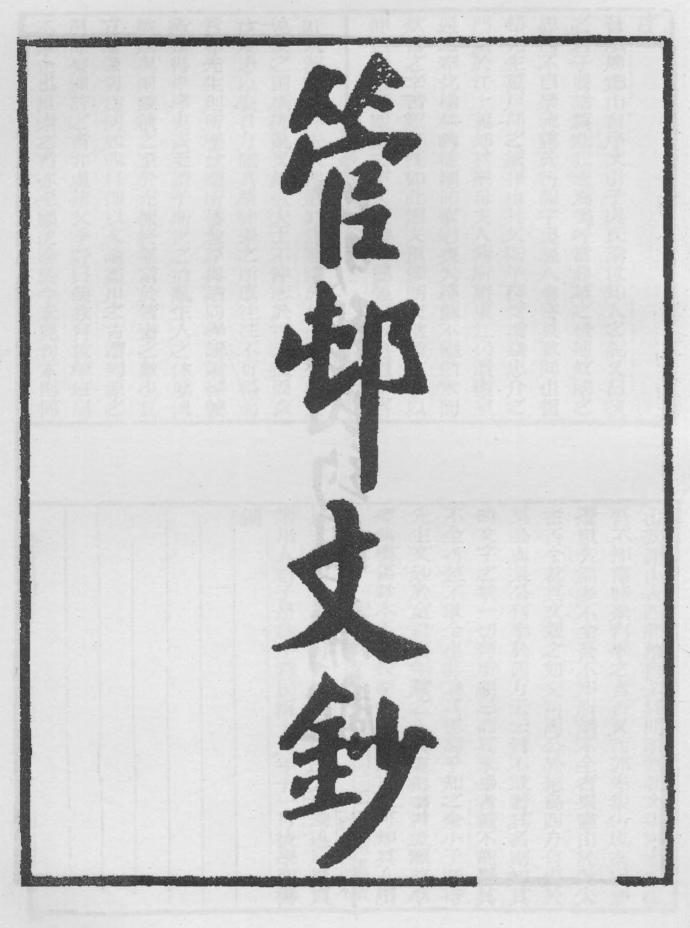 管邨文鈔